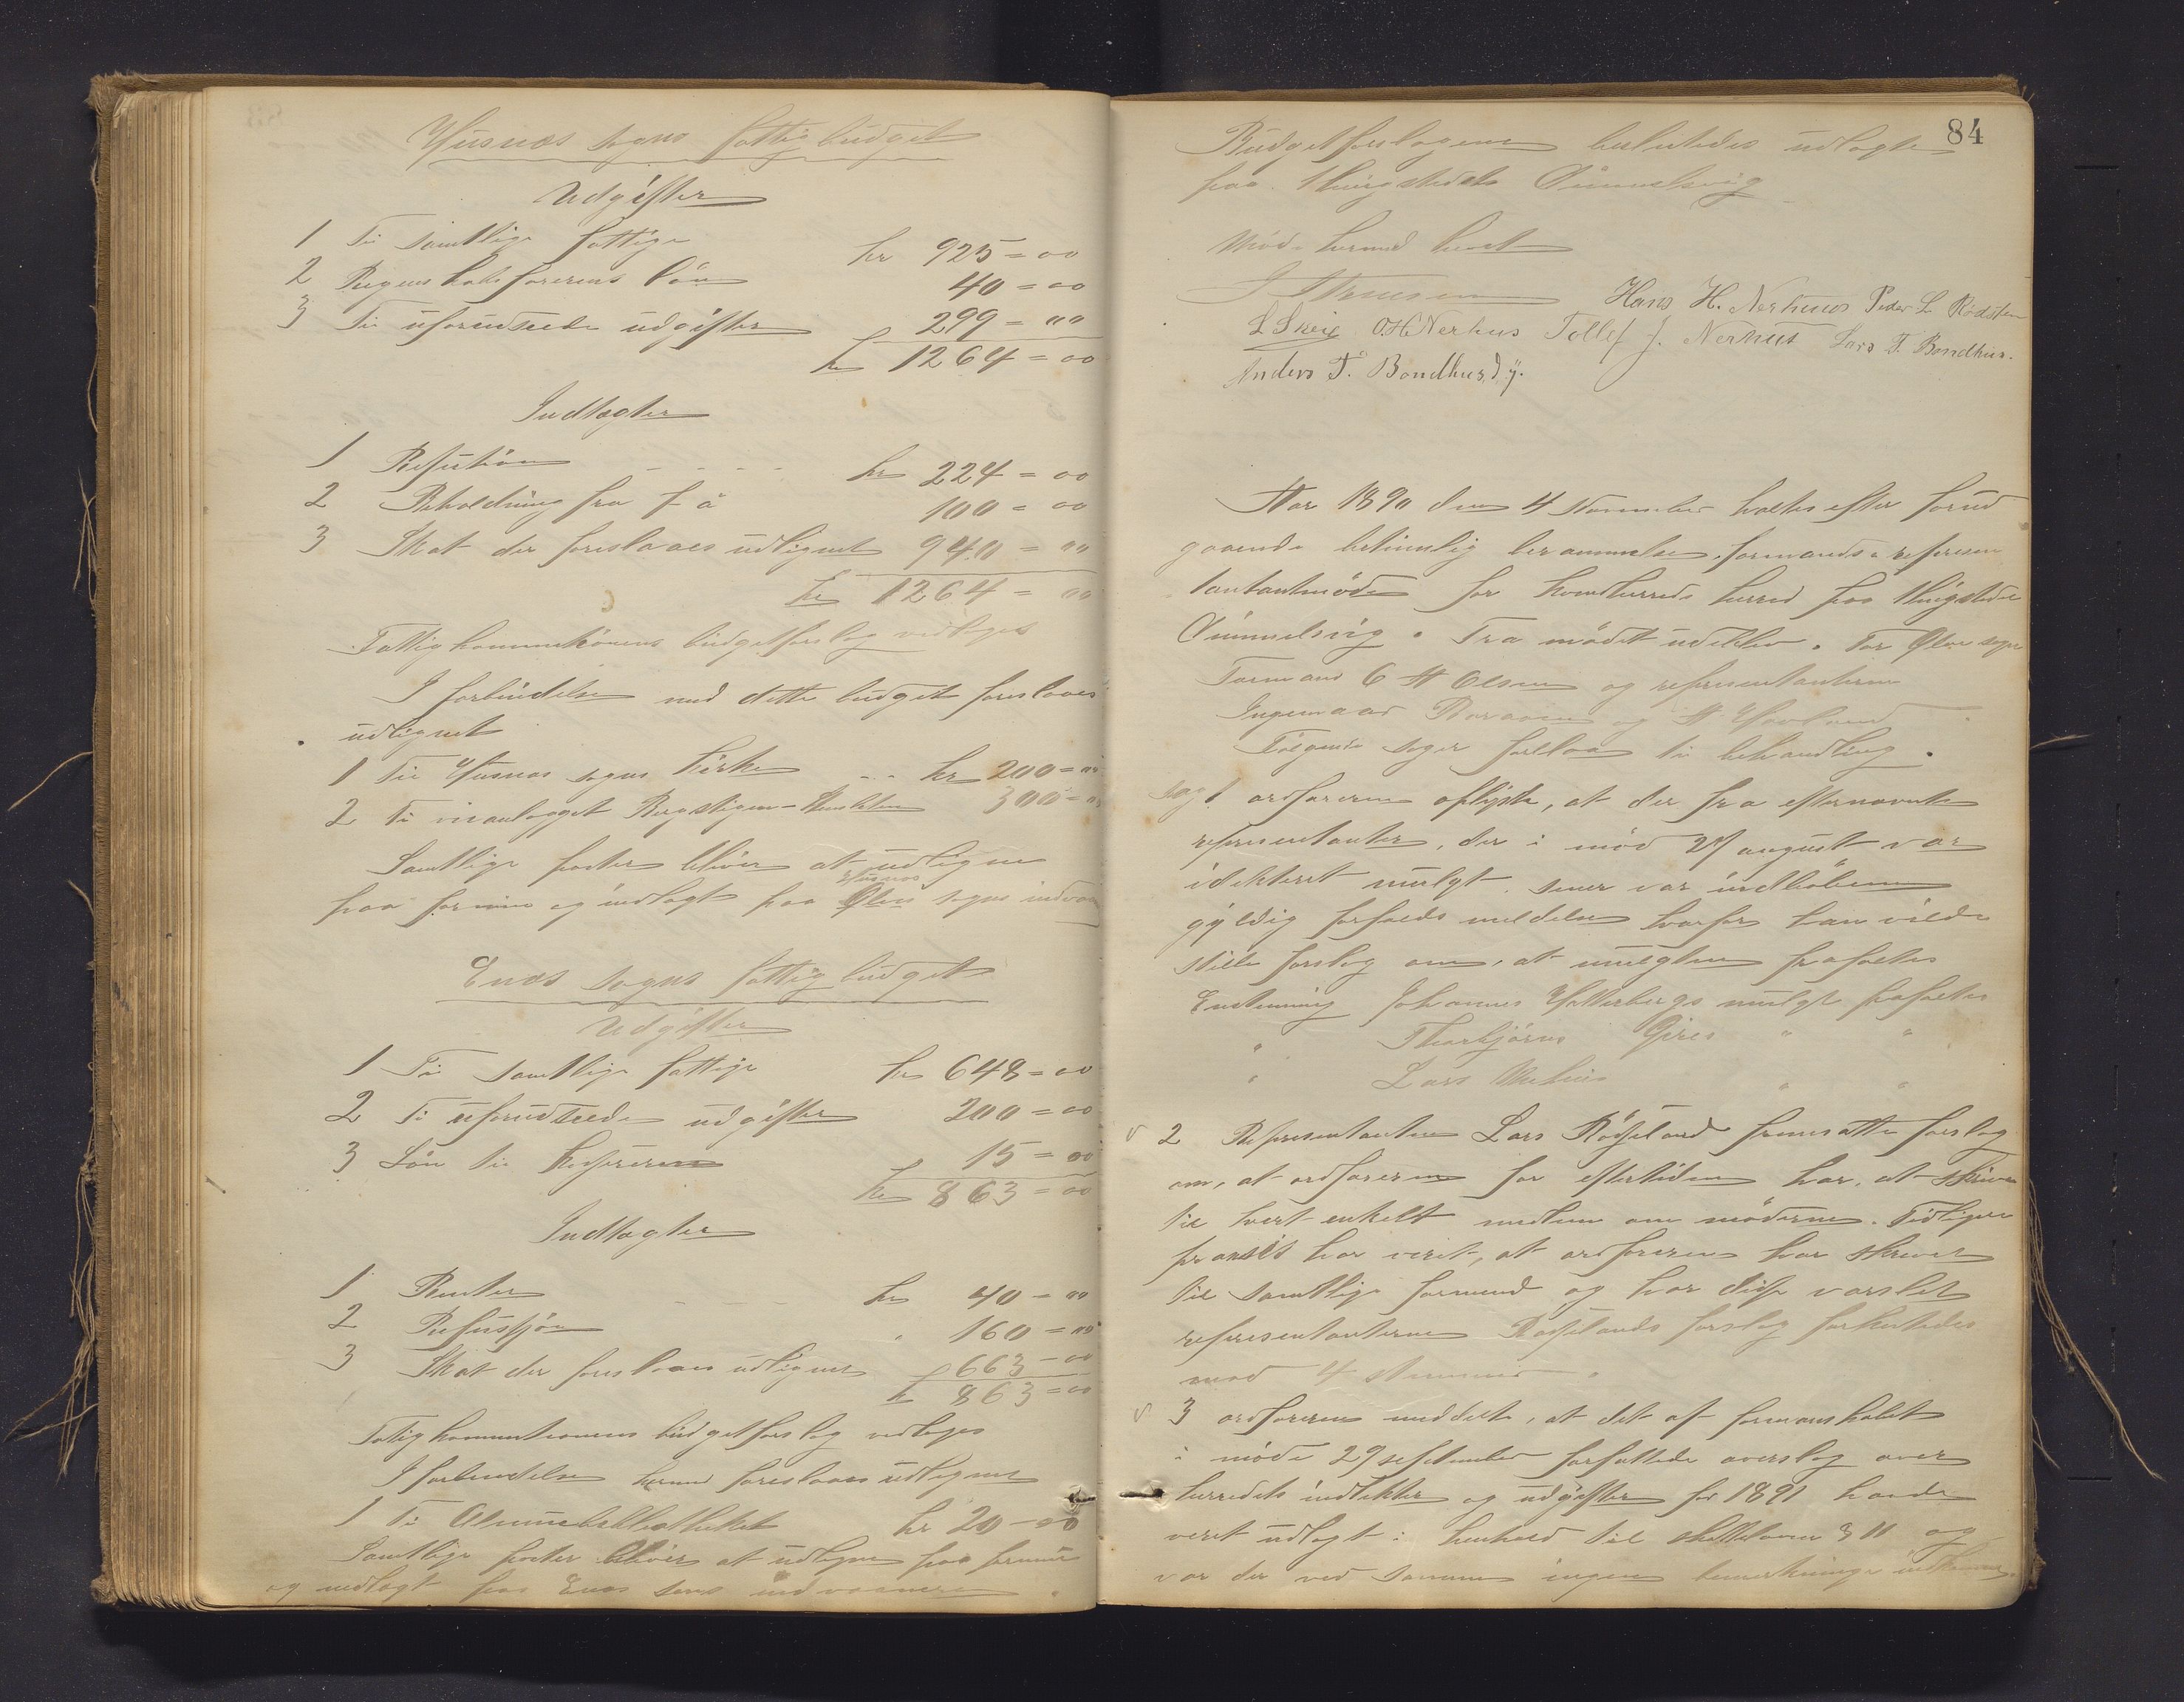 Husnæs sogns fattigbudget
Udgifter
1 Til samtlige fattige kr 925 = 00
2 Regnskabsførerens løn 40 = 00
3 Til uforudseede udgifter 299 = 00
kr 1264 = 00
Indtægter
1 Refution kr 224 = 00
2 Beholdning fra f å 100 = 00
3 Skat der foreslaaes udlignet 940 = 00
kr 1264 = 00
Fattigkommissionens budgetforslag vedlages
I forbindelse med dette budget foreslaaes
udlignet
1 Til Husnæs sogns kirke kr 200 = 00
2 Til veianlægget 300 = 00
Samtlige poster bliver at udligne
paa formue og indtægt paa Husnæs sogns indvaan
Enæs sogns fattigbudget
Udgifter
1 Til samtlige fattige kr 648 = 00
2 Til uforudseede udgifter 200 = 00
3 Løn til kassereren 15 = 00
kr 863 = 00
Indtægter
1 Renter kr 40 = 00
2 Refusjon " 160 = 00
3 Skat der foreslaaes udlignet 663 = 00
kr 863 = 00
Fatigkommissionens budgetforslag vedlages
I forbindelse hermed foreslaaes udlignet
1 Til Almuebibliotheket kr 20 = 00
Samtlige poster bliver at udligne paa formue
og indtægt paa Enæs sogns indvaanere.
84
Budgetforslagene besluttedes udlagte
paa thingstedet Sunnelsvig
Møde hermed hevet
Hans H. Nerhuus Peder L. Rødsten
L Skeie O.H. Nerhus Tollef J. Nerhus Lars T. Bondhus.
Anders T. Bondhus, d.y.
Aar 1890 den 4 November holdtes efter forud
gaaende betimelig berammelse formands & represen
tantantmøde for Kvindherreds herred paa thingstedet
Sunnelsvig. Fra mødet udeblev. For Ølve sogn
Formand O H Olsen og representanterne
Ingemaar og H Hovland
Følgende sager forelaa til behandling.
Sag 1 ordføreren oplyste, at der fra efternævnte
representanter, der i mød 27 august var
idekteret mulgt senere var indløbne
gyldig forfalds meldelse hvorfor han vilde
stille forslag om, at mulgten frafaldes
Enstemmig Johannes Hatlebergs mulgt frafaldes
" Thorbjørns Gires " "
" Lars " "
2 Representanten Lars Røsseland fremsatte forslag
om, at ordføreren for eftertiden har, at skrive
til hvert enkelt medlem om møderne. Tidligere
praksis har verit, at ordføreren har skrevet
til samtlige formænd og har disse varslet
representanterne Røsselands forslag forkastedes
mod 4 stemmer.
3 ordføreren meddelte, at det af formanskabet
i møde 27 september forfattede overslag over
herredets indtekter og udgifter for 1891 havde
verit udlagt i henhold til skatteloven § 11 og
var der ved samme ingen bemerkninger indkomne.